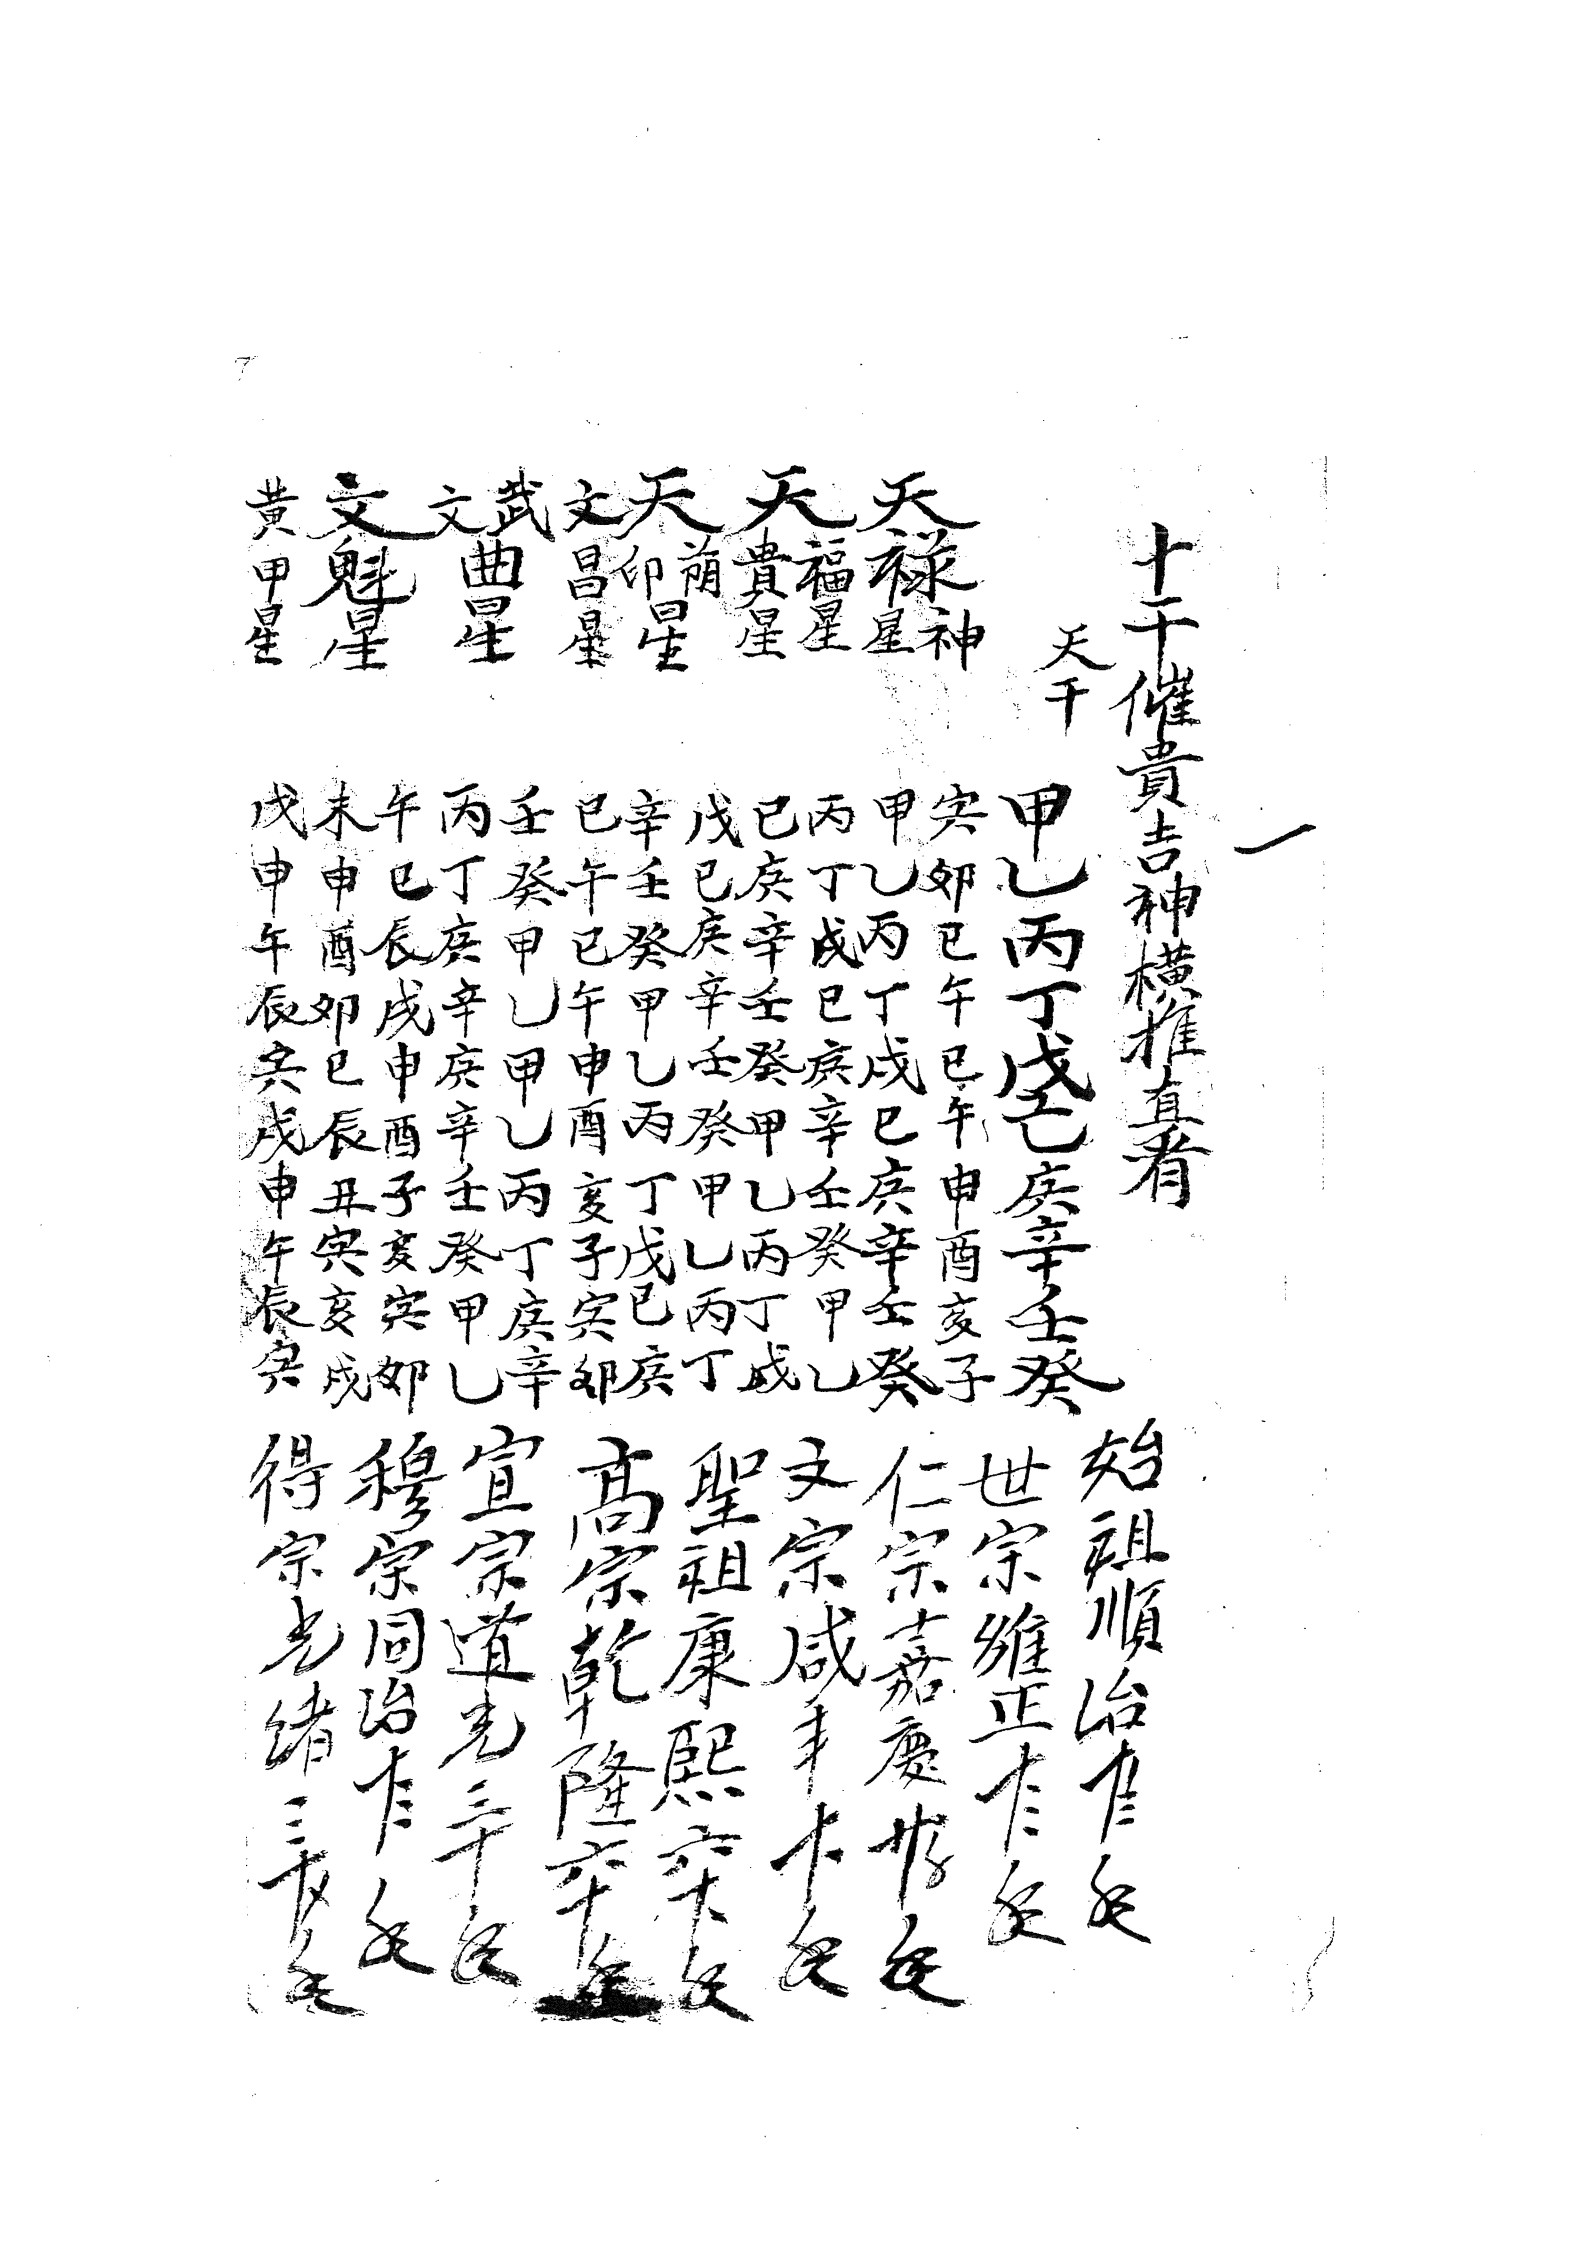 一
十干催貴吉神横推直看
天干
甲乙丙丁戊己庚辛壬癸
天祿神 寅卯巳午巳午申酉亥子
天祿星 甲乙丙丁戊己庚辛壬癸
天福星 丙丁戊己庚辛壬癸甲乙
天貴星 己庚辛壬癸甲乙丙丁戊
天廕星 戊己庚辛壬癸甲乙丙丁
天印星 辛壬癸甲乙丙丁戊己庚
文昌星 巳午巳午申酉亥子寅卯
武曲星 壬癸甲乙甲乙丙丁庚辛
文曲星 丙丁庚辛庚辛壬癸甲乙
文魁星 午巳辰戌申酉子亥寅卯
未申酉卯巳辰丑寅亥戌
黄甲星 戌申午辰寅戌申午辰寅
始祖順治
世宗雍正
仁宗嘉慶
文宗咸丰
聖祖康熙
高宗乾隆
宣宗道光三十
穆宗同治
得宗光緒三十